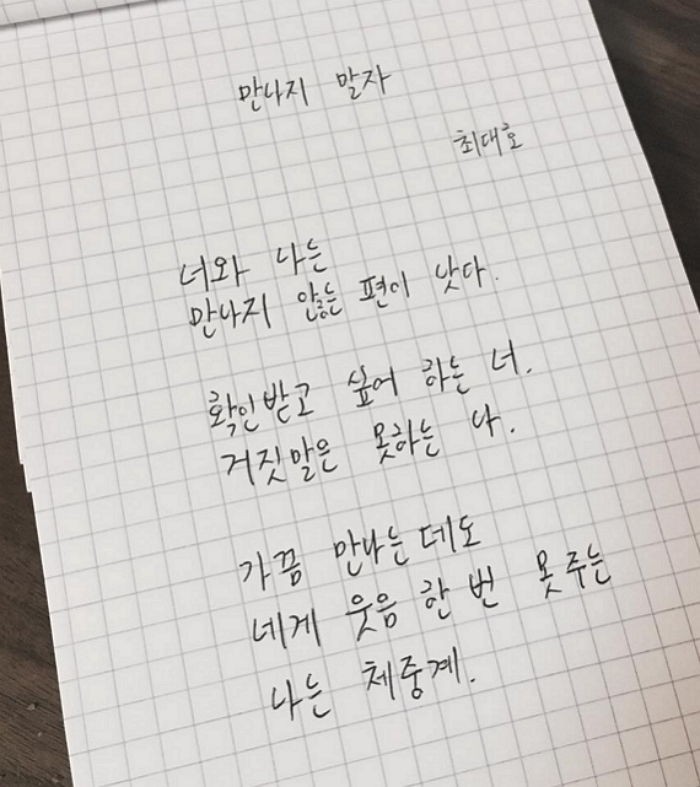 만나지 말자
최대호
너와 나는
만나지 않는 편이 낫다.
확인받고 싶어 하는 너.
거짓말은 못하는 나.
가끔 만나는데도
네게 웃음 한 번 못 주는
나는 체중계.